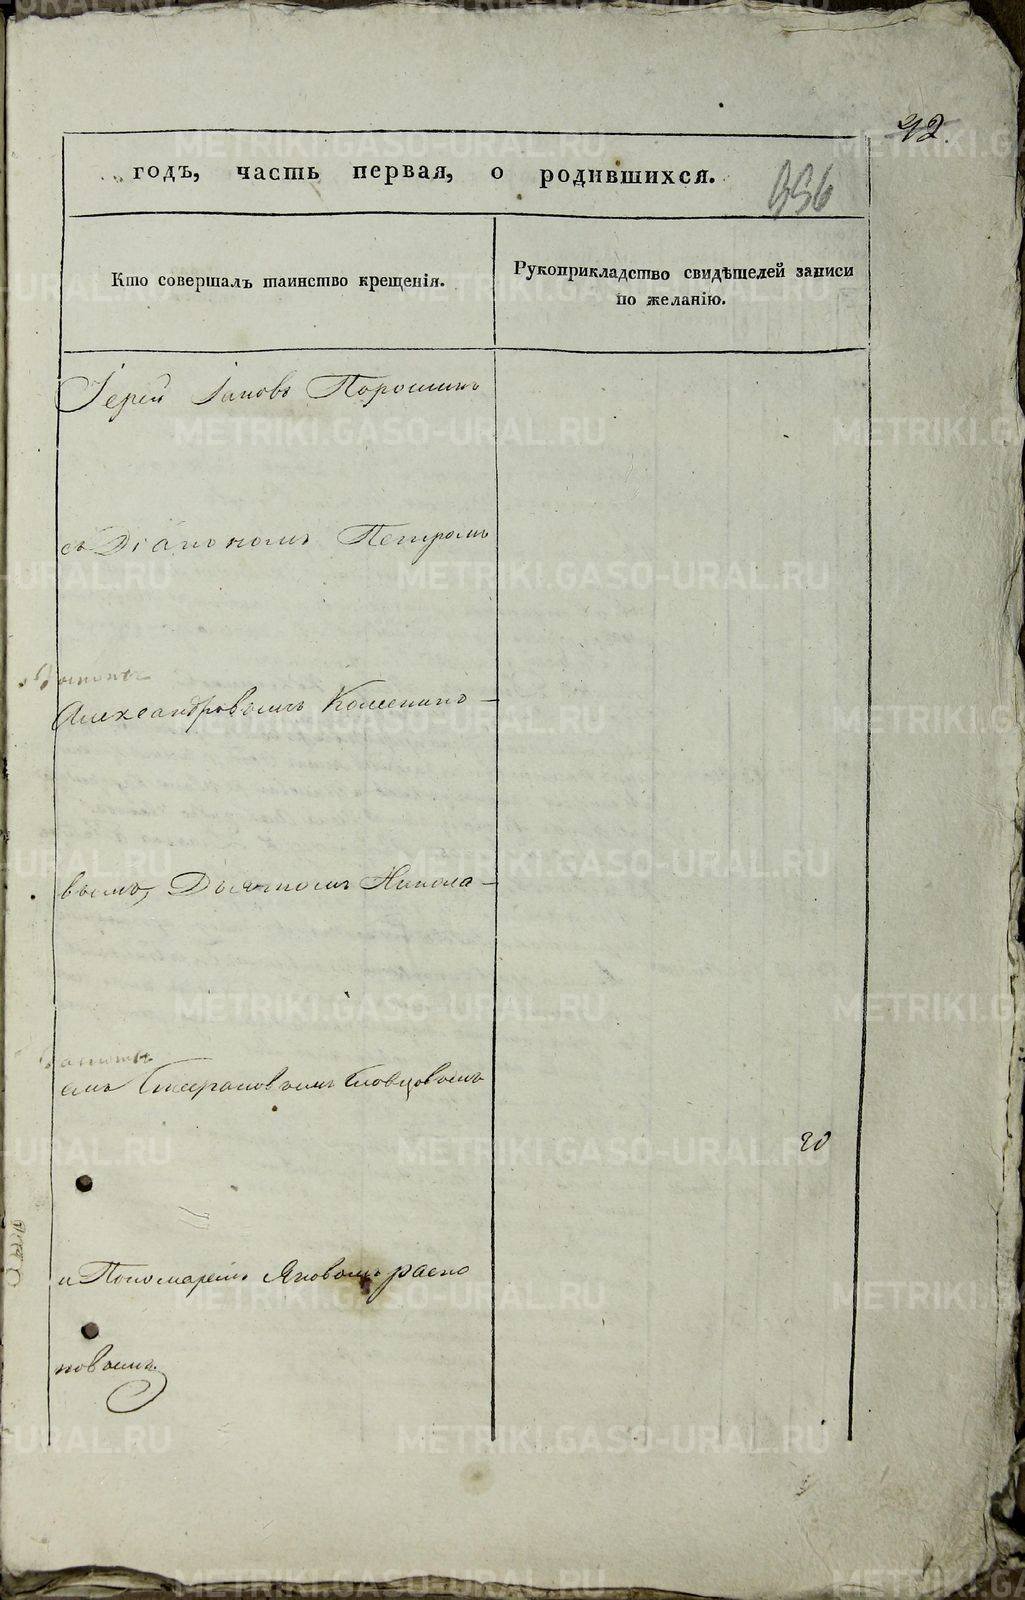 42
годъ, часть первая, о родившихся.
936
Кто совершалъ таинство крещенія.
Рукоприкладство свидѣтелей записи
по желанію.
Іерей Іаковъ Порошинъ
съ Діакономъ Петромъ
Александровымъ
вымъ, Дьячкомъ Никола-
емъ Словцовымъ
20
и Пономаремъ Яковомъ
новымъ.
METRIKI.GASO-URAL.RU